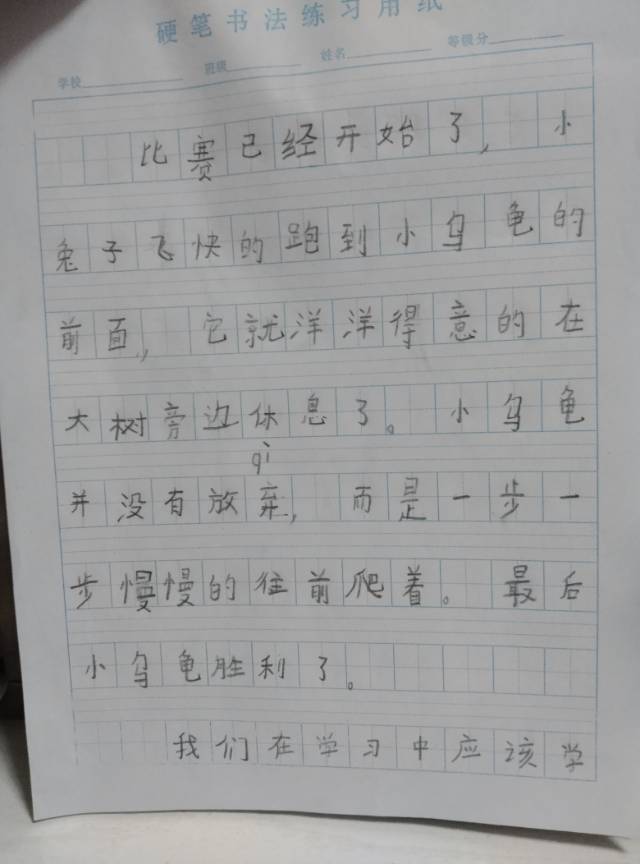 硬笔书法练习用纸
学校 班级 姓名 等级分
比赛已经开始了，小
兔子飞快的跑到小乌龟的
前面，它就洋洋得意的在
大树旁边休息了。小乌龟
qì
并没有放弃，而是一步一
步慢慢的往前爬着。最后
小乌龟胜利了。
我们在学习中应该学